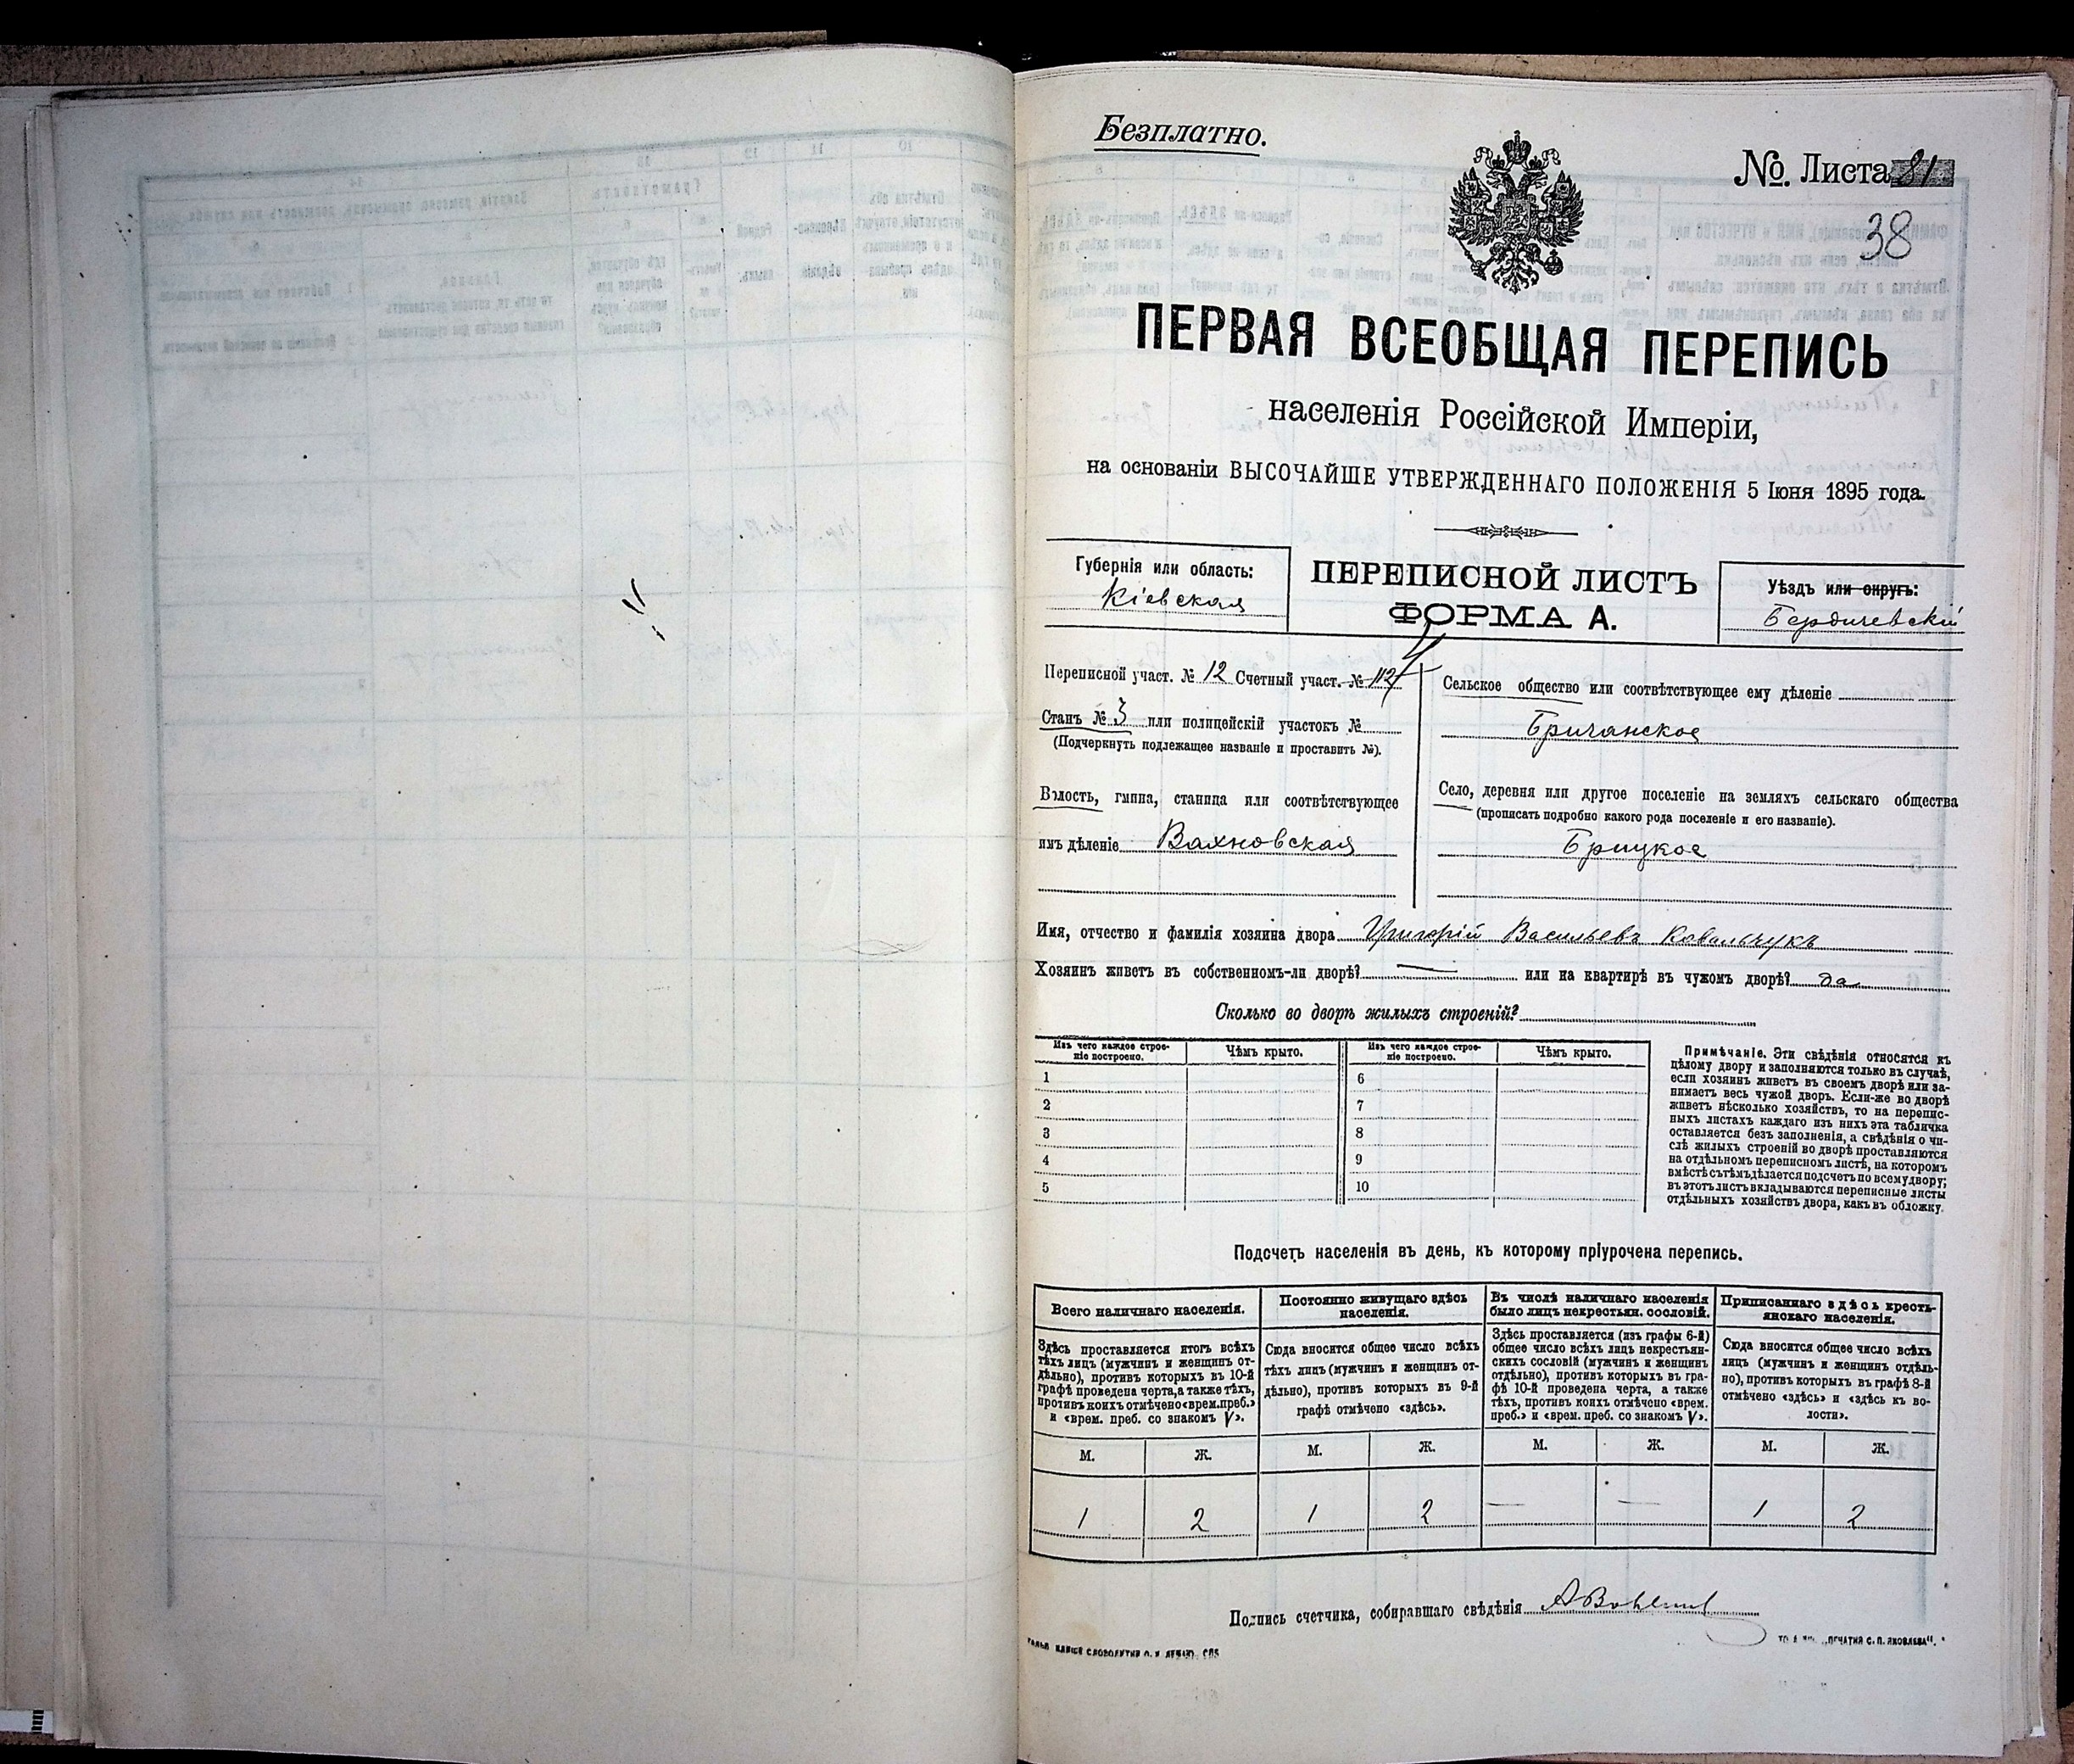 Безплатно.
№ Листа 81
38
ПЕРВАЯ ВСЕОБЩАЯ ПЕРЕПИСЬ
населенія Россійской Имперіи,
на основаніи ВЫСОЧАЙШЕ УТВЕРЖДЕННАГО ПОЛОЖЕНІЯ 5 Іюня 1895 года.
Губернія или область:
Кіевская
ПЕРЕПИСНОЙ ЛИСТЪ
ФОРМА А.
Уѣздъ или округъ:
Бердичевскій
Переписной участ. № 12 Счетный участ. №
Станъ № 3 или полицейскій участокъ №
(Подчеркнуть подлежащее названіе и проставить №).
Волость, гмина, станица или соотвѣтствующее
имъ дѣленіе Вахновская
Сельское общество или соотвѣтствующее ему дѣленіе
Бричанское
Село, деревня или другое поселеніе на земляхъ сельскаго общества
(прописать подробно какого рода поселеніе и его названіе).
Брицкое
Имя, отчество и фамилія хозяина двора Григорій Васильевъ Ковальчукъ
Хозяинъ живетъ въ собственномъ-ли дворѣ? — или на квартирѣ въ чужомъ дворѣ? да
Сколько во дворѣ жилыхъ строеній?
Изъ чего каждое строе-
ніе построено.
Чѣмъ крыто.
Изъ чего каждое строе-
ніе построено.
Чѣмъ крыто.
1 6
2 7
3 8
4 9
5 10
Примѣчаніе. Эти свѣдѣнія относятся къ
цѣлому двору и заполняются только въ случаѣ,
если хозяинъ живетъ въ своемъ дворѣ или за-
нимаетъ весь чужой дворъ. Если-же во дворѣ
живетъ нѣсколько хозяйствъ, то на перепис-
ныхъ листахъ каждаго изъ нихъ эта табличка
оставляется безъ заполненія, а свѣдѣнія о чи-
слѣ жилыхъ строеній во дворѣ проставляются
на отдѣльномъ переписномъ листѣ, на которомъ
вмѣстѣ съ тѣмъ дѣлается подсчетъ по всему двору;
въ этотъ листъ вкладываются переписные листы
отдѣльныхъ хозяйствъ двора, какъ въ обложку.
Подсчетъ населенія въ день, къ которому пріурочена перепись.
Всего наличнаго населенія.
Здѣсь проставляется итогъ всѣхъ
тѣхъ лицъ (мужчинъ и женщинъ от-
дѣльно), противъ которыхъ въ 10-й
графѣ проведена черта, а также тѣхъ,
противъ коихъ отмѣчено «врем. преб.»
и «врем. преб. со знакомъ V».
Постоянно живущаго здѣсь
населенія.
Сюда вносится общее число всѣхъ
тѣхъ лицъ (мужчинъ и женщинъ от-
дѣльно), противъ которыхъ въ 9-й
графѣ отмѣчено «здѣсь».
Въ числѣ наличнаго населенія
было лицъ некрестьян. сословій.
Здѣсь проставляется (изъ графы 6-й)
общее число всѣхъ лицъ некрестьян-
скихъ сословій (мужчинъ и женщинъ
отдѣльно), противъ которыхъ въ гра-
фѣ 10-й проведена черта, а также
тѣхъ, противъ коихъ отмѣчено «врем.
преб.» и «врем. преб. со знакомъ V».
Приписаннаго здѣсь кресть-
янскаго населенія.
Сюда вносится общее число всѣхъ
лицъ (мужчинъ и женщинъ отдѣль-
но), противъ которыхъ въ графѣ 8-й
отмѣчено «здѣсь» и «здѣсь къ во-
лости».
М. Ж. М. Ж. М. Ж. М. Ж.
1 2 1 2 — — 1 2
Подпись счетчика, собиравшаго свѣдѣнія
„ПЕЧАТНЯ С. П. ЯКОВЛЕВА“.